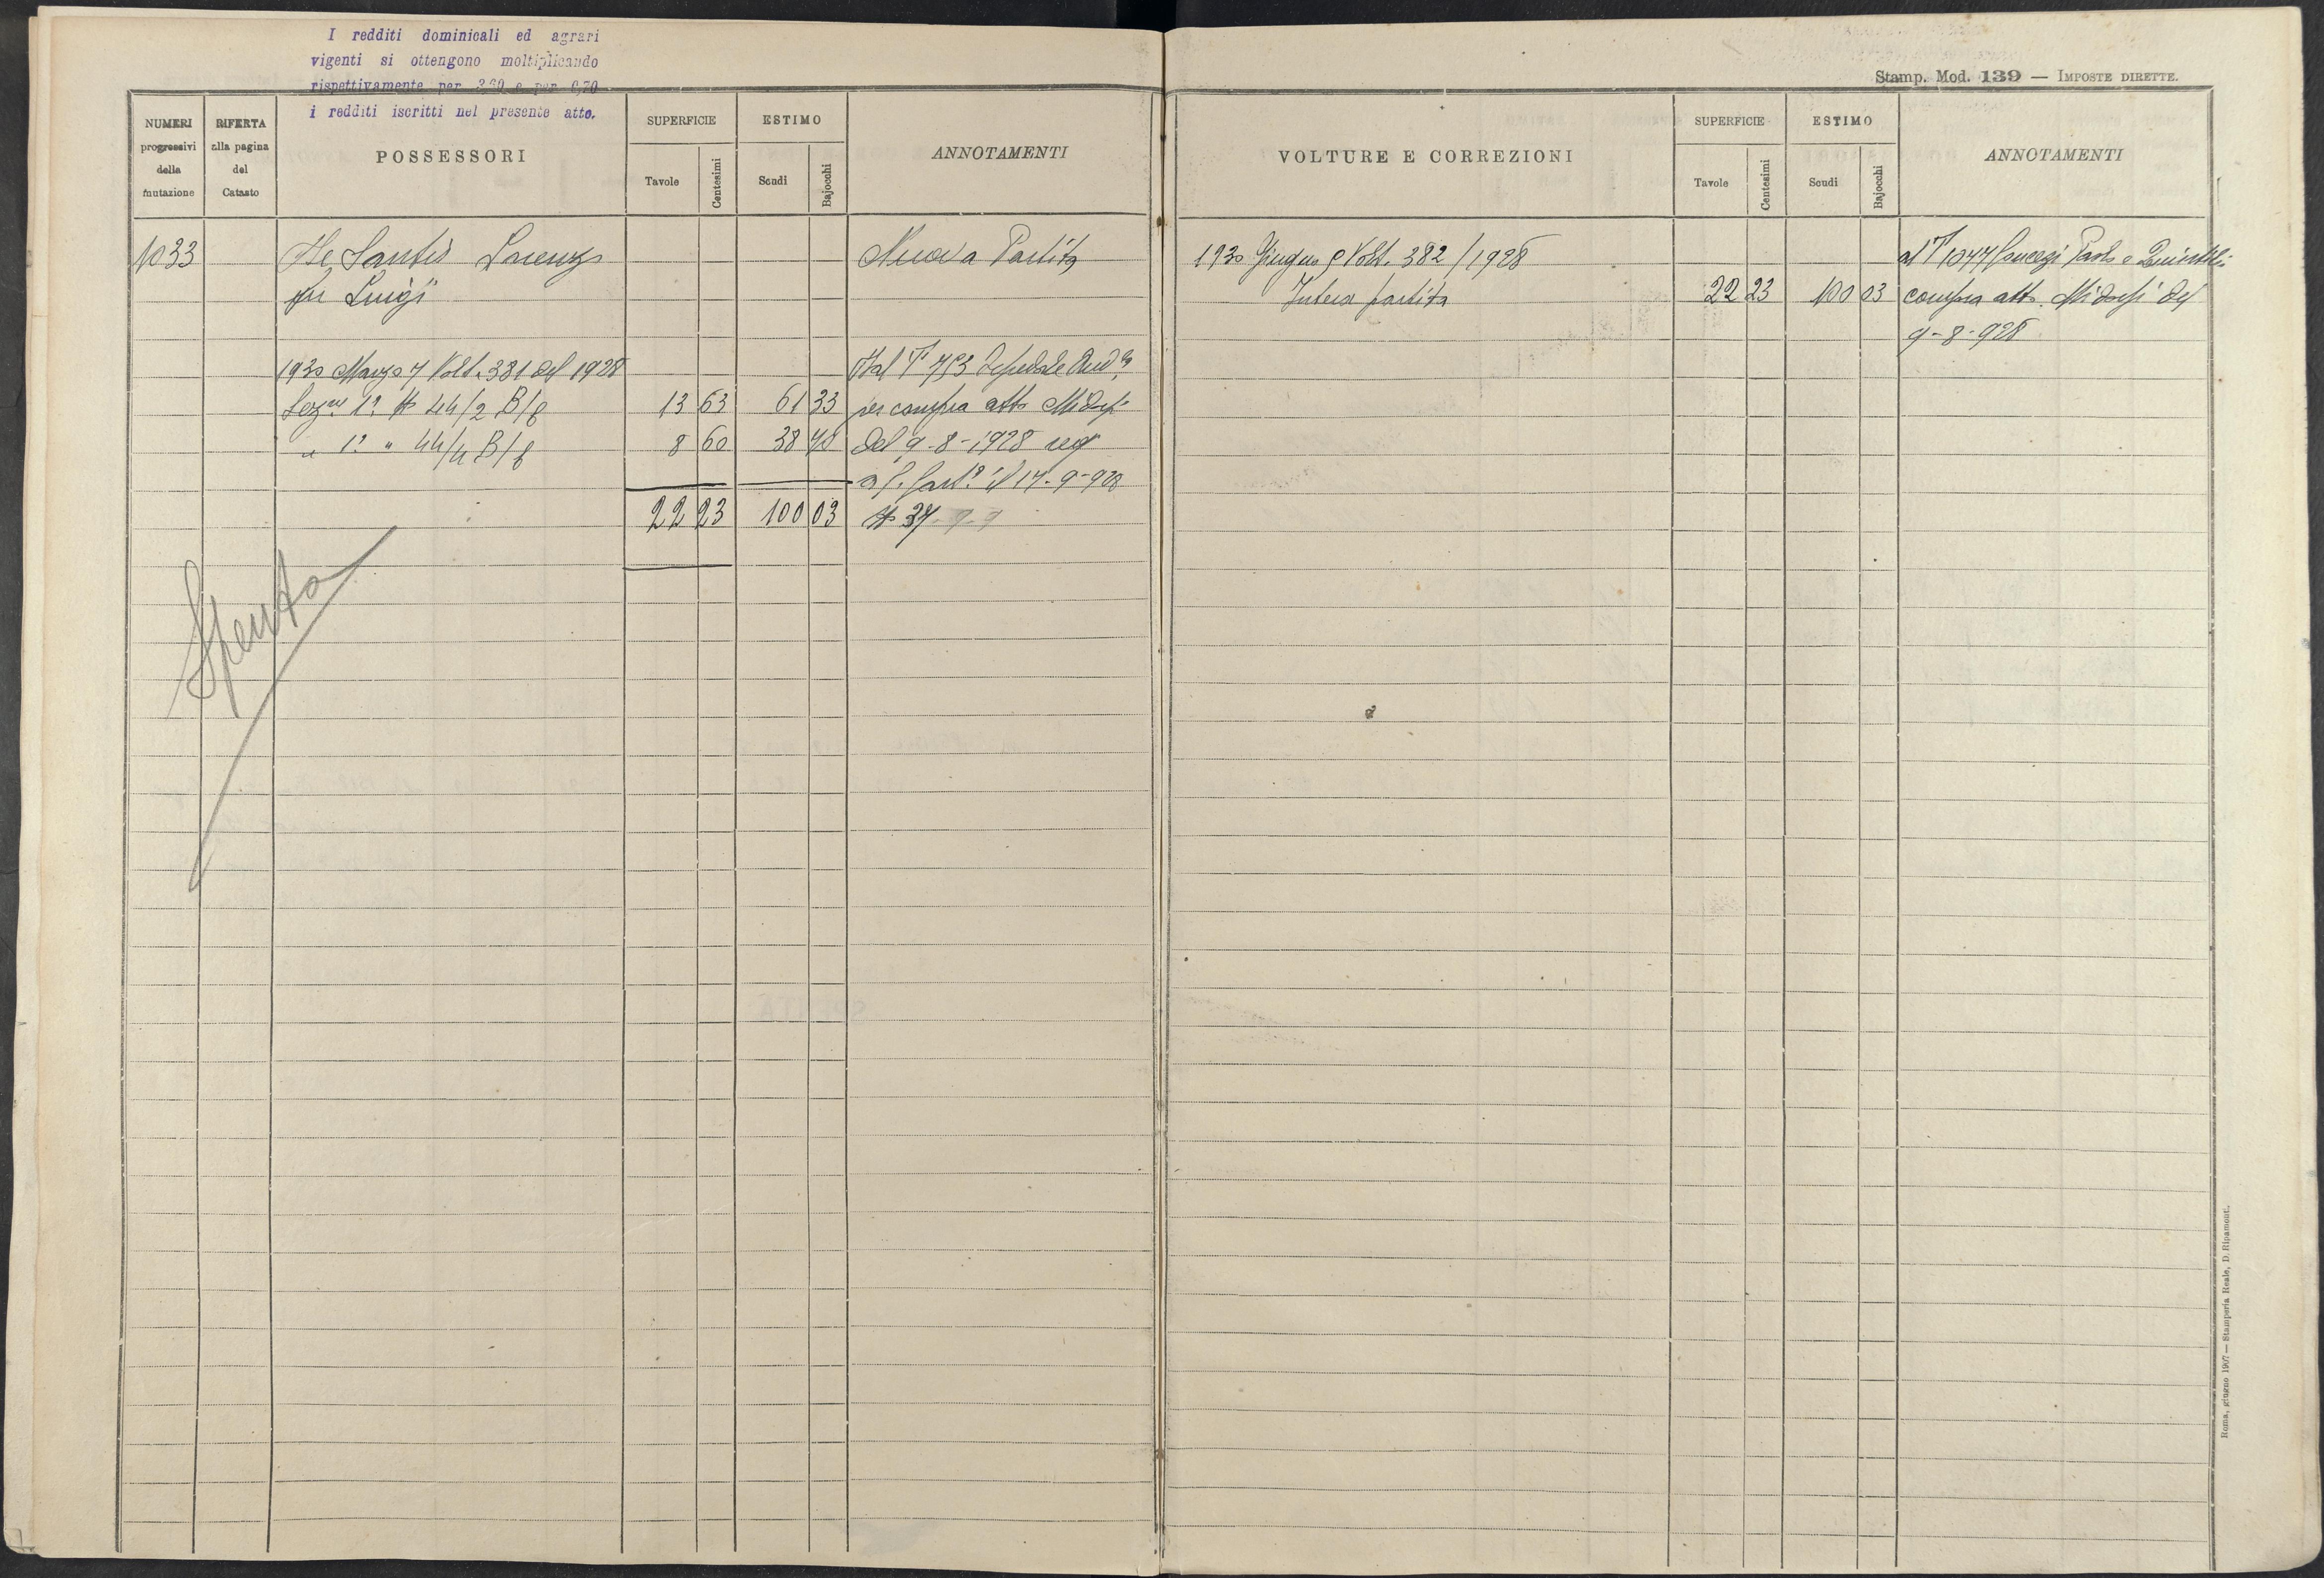 I redditi dominicali ed agrari
vigenti si ottengono moltiplicando
rispettivamente per 3,60 e per 0,70
i redditi iscritti nel presente atto.
Stamp. Mod. 139 — IMPOSTE DIRETTE.
NUMERI progressivi della mutazione
RIFERTA alla pagina del Catasto
POSSESSORI
SUPERFICIE
Tavole Centesimi
ESTIMO
Scudi Bajocchi
ANNOTAMENTI
1033 De Santis Lorenzo Nuova Partita
fu Luigi
1930 Marzo 7 Volt. 381 del 1928 Dal T 753
Sezne 1ª N 44/2 B/f 13 63 61 33 per compra atto
" 1ª " 44/4 B/f 8 60 38 70 del 9-8-1928 reg
il 17-9-928
22 23 100 03 N 37
Spenta
VOLTURE E CORREZIONI
SUPERFICIE
Tavole Centesimi
ESTIMO
Scudi Bajocchi
ANNOTAMENTI
1930 Giugno 9 Volt. 382/1928 al T 1047 Paolo e
Intera partita 22 23 100 03 compra atto del
9-8-928
Roma, giugno 1907 — Stamperia Reale, D. Ripamonti.